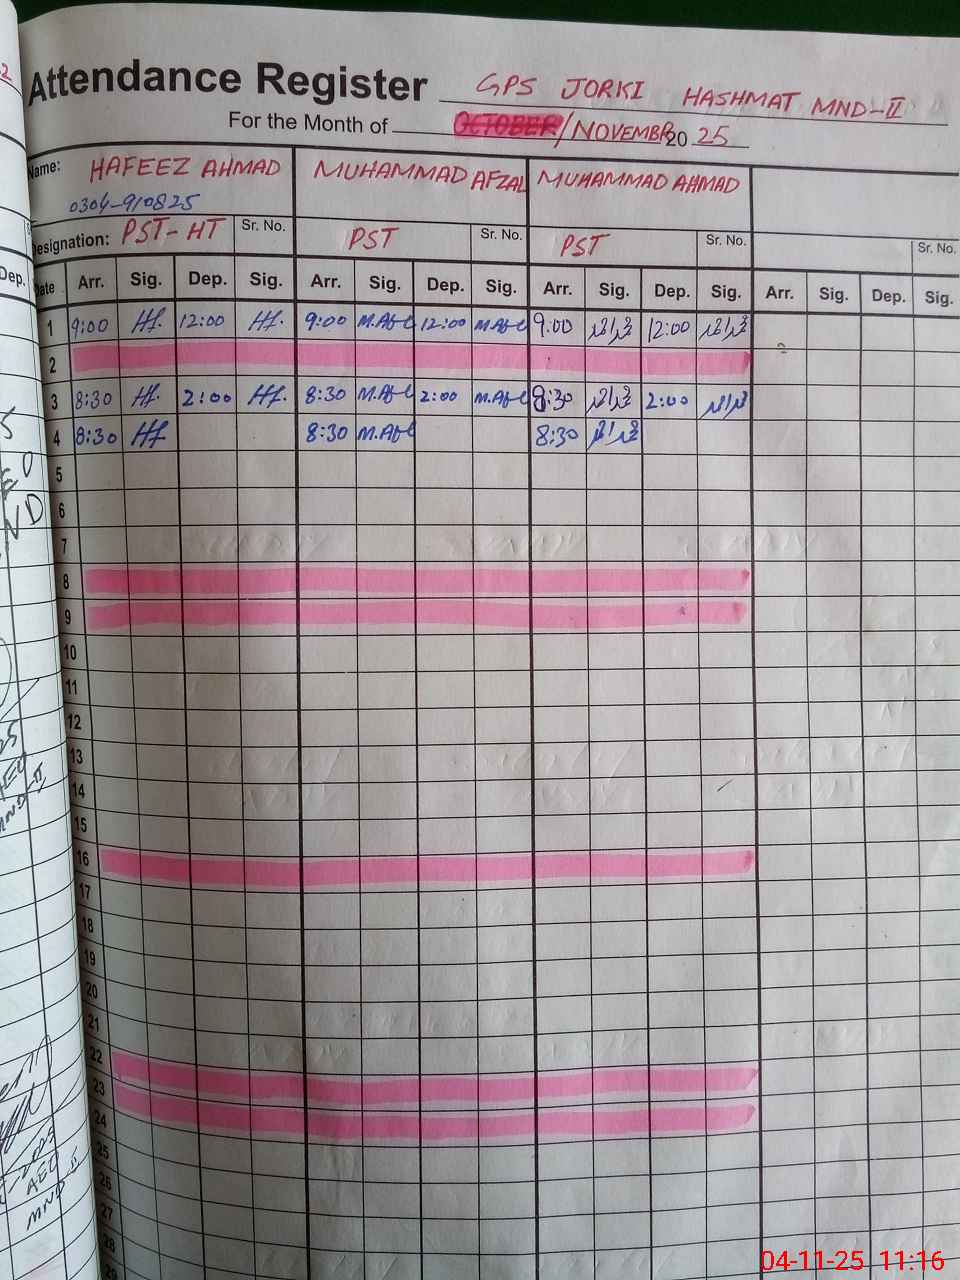 Attendance Register GPS JORKI HASHMAT MND-II
For the Month of OCTOBER/NOVEMBR 20 25
Name: HAFEEZ AHMAD MUHAMMAD AFZAL MUHAMMAD AHMAD
0304-910825
Designation: PST-HT Sr. No. PST Sr. No. PST Sr. No. Sr. No.
Date Arr. Sig. Dep. Sig. Arr. Sig. Dep. Sig. Arr. Sig. Dep. Sig. Arr. Sig. Dep. Sig.
1 9:00 12:00 9:00 12:00 9:00 12:00
2
3 8:30 2:00 8:30 2:00 8:30 2:00
4 8:30 8:30 8:30
5
6
7
8
9
10
11
12
13
14
15
16
17
18
19
20
21
22
23
24
25
26
27
28
29
Dep.
AEO
MND-II
04-11-25 11:16